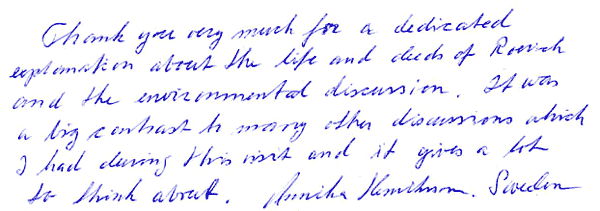 Thank you very much for a dedicated
explanation about the life and deeds of Roerich
and the environmental discussion. It was
a big contrast to many other discussions which
I had during this visit and it gives a lot
to think about. Annika Sweden